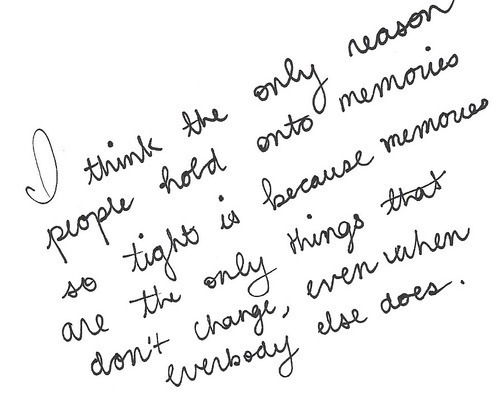 I think the only reason
people hold onto memories
so tight is because memories
are the only things that
don't change, even when
everbody else does.